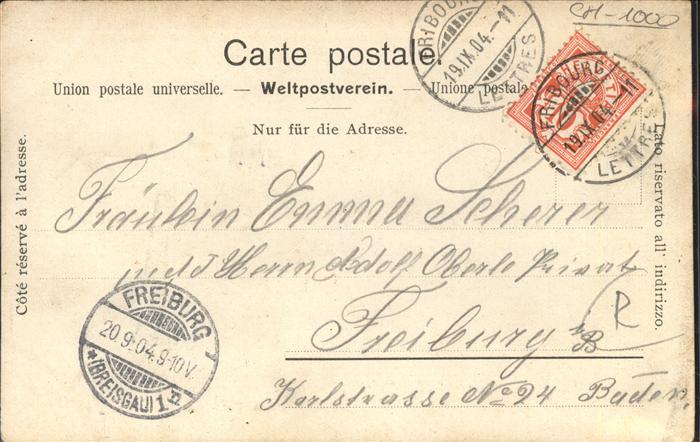 CH-1000
Carte postale.
Union postale universelle. — Weltpostverein. — Unione postale
Nur für die Adresse.
Côté réservé à l'adresse.
Lato riservato all' indirizzo.
FRIBOURG
19.IX.04.-11
LETTRES
FRIBOURG
19.IX.04.-11
LETTRES
Fräulein Emma Scherer
Herrn Adolf Oberle Privat
Freiburg i/B
R
Karlstrasse No 24 Baden
FREIBURG
20.9.04.9-10V.
*(BREISGAU)1